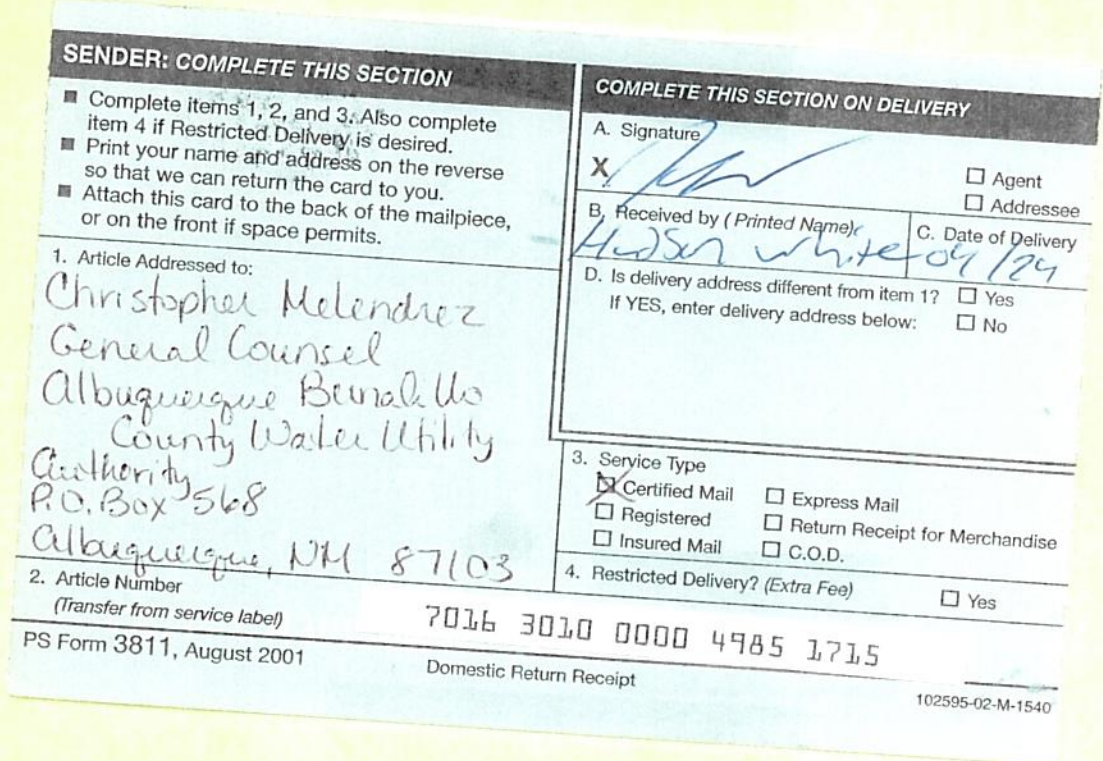 SENDER: COMPLETE THIS SECTION
■ Complete items 1, 2, and 3. Also complete
item 4 if Restricted Delivery is desired.
■ Print your name and address on the reverse
so that we can return the card to you.
■ Attach this card to the back of the mailpiece,
or on the front if space permits.
1. Article Addressed to:
Christopher Melendrez
General Counsel
Albuquerque Bernalillo
County Water Utility
Authority
P.O. Box 568
Albuquerque, NM 87103
2. Article Number
(Transfer from service label)
7016 3010 0000 4985 1715
COMPLETE THIS SECTION ON DELIVERY
A. Signature
X
☐ Agent
☐ Addressee
B. Received by (Printed Name)
Hudson White
C. Date of Delivery
04/24
D. Is delivery address different from item 1? ☐ Yes
If YES, enter delivery address below: ☐ No
3. Service Type
☒ Certified Mail ☐ Express Mail
☐ Registered ☐ Return Receipt for Merchandise
☐ Insured Mail ☐ C.O.D.
4. Restricted Delivery? (Extra Fee) ☐ Yes
PS Form 3811, August 2001
Domestic Return Receipt
102595-02-M-1540